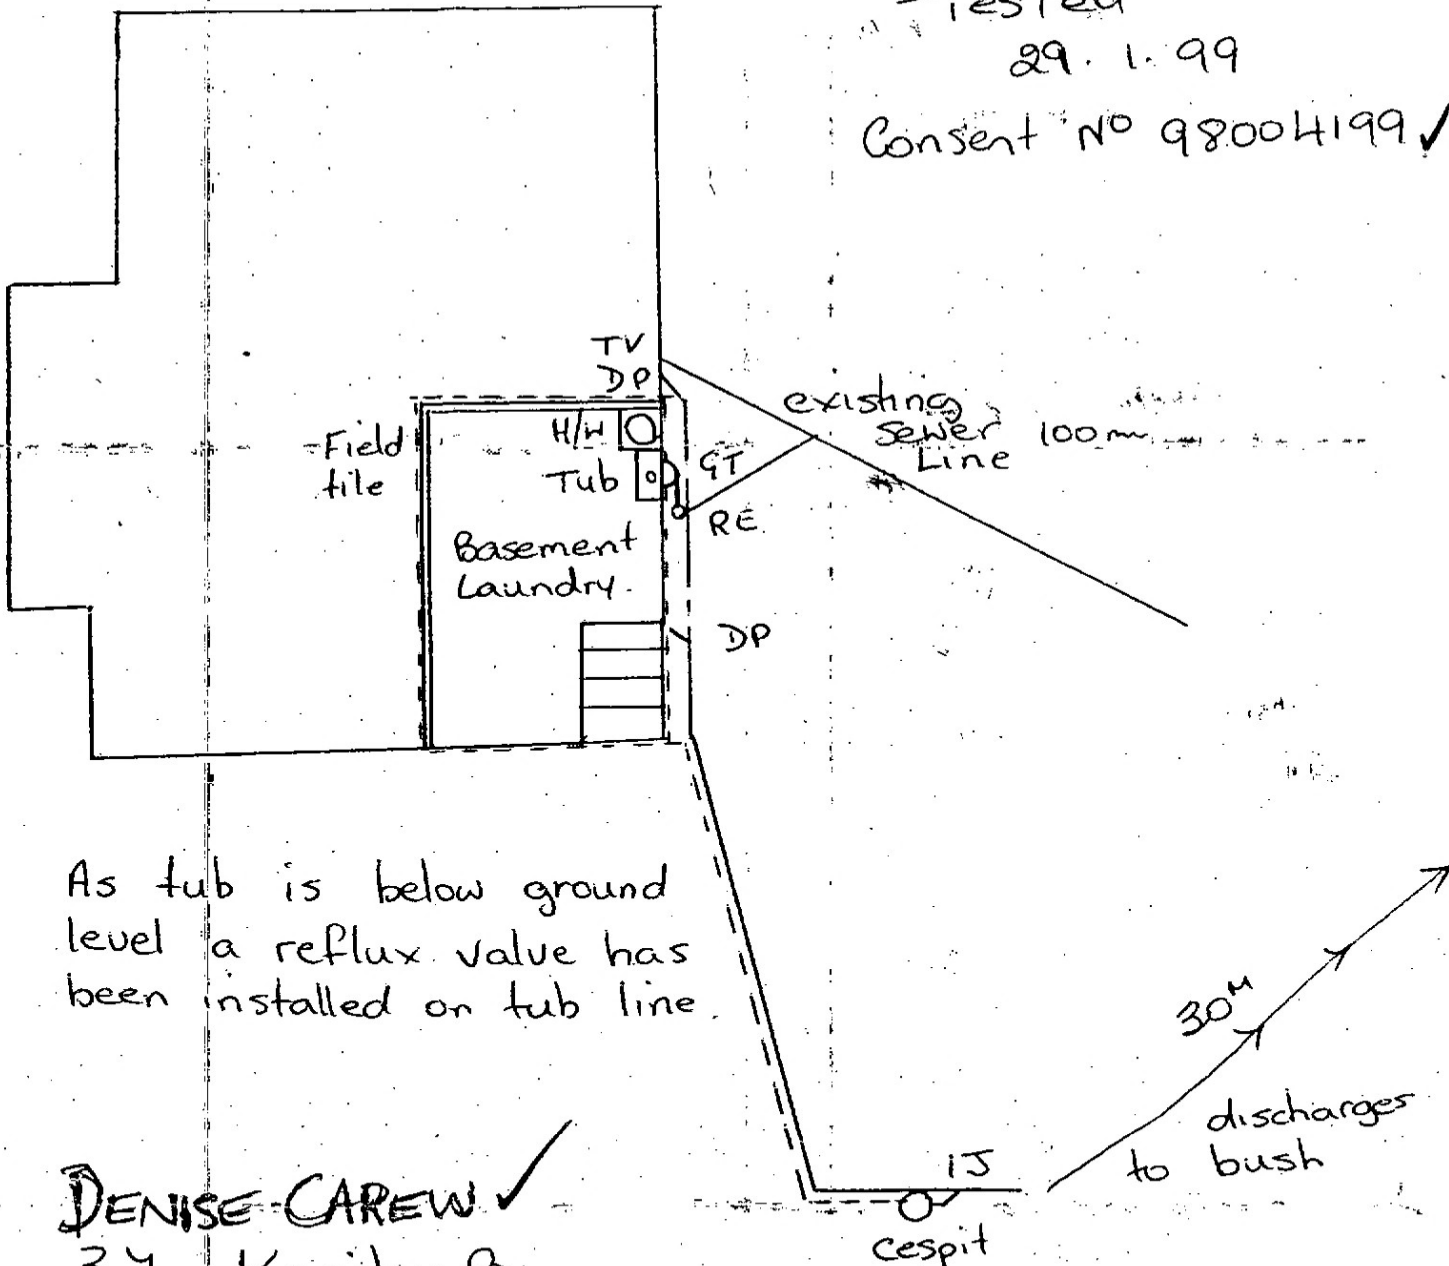 Tested
29. 1. 99
Consent No 98004199 ✓
TV
DP
existing
sewer 100m
Line
H/W
GT
Field
tile
Tub
RE
Basement
Laundry.
DP
As tub is below ground
level a reflux valve has
been installed on tub line.
30M
discharges
to bush
IJ
cespit
DENISE CAREW ✓